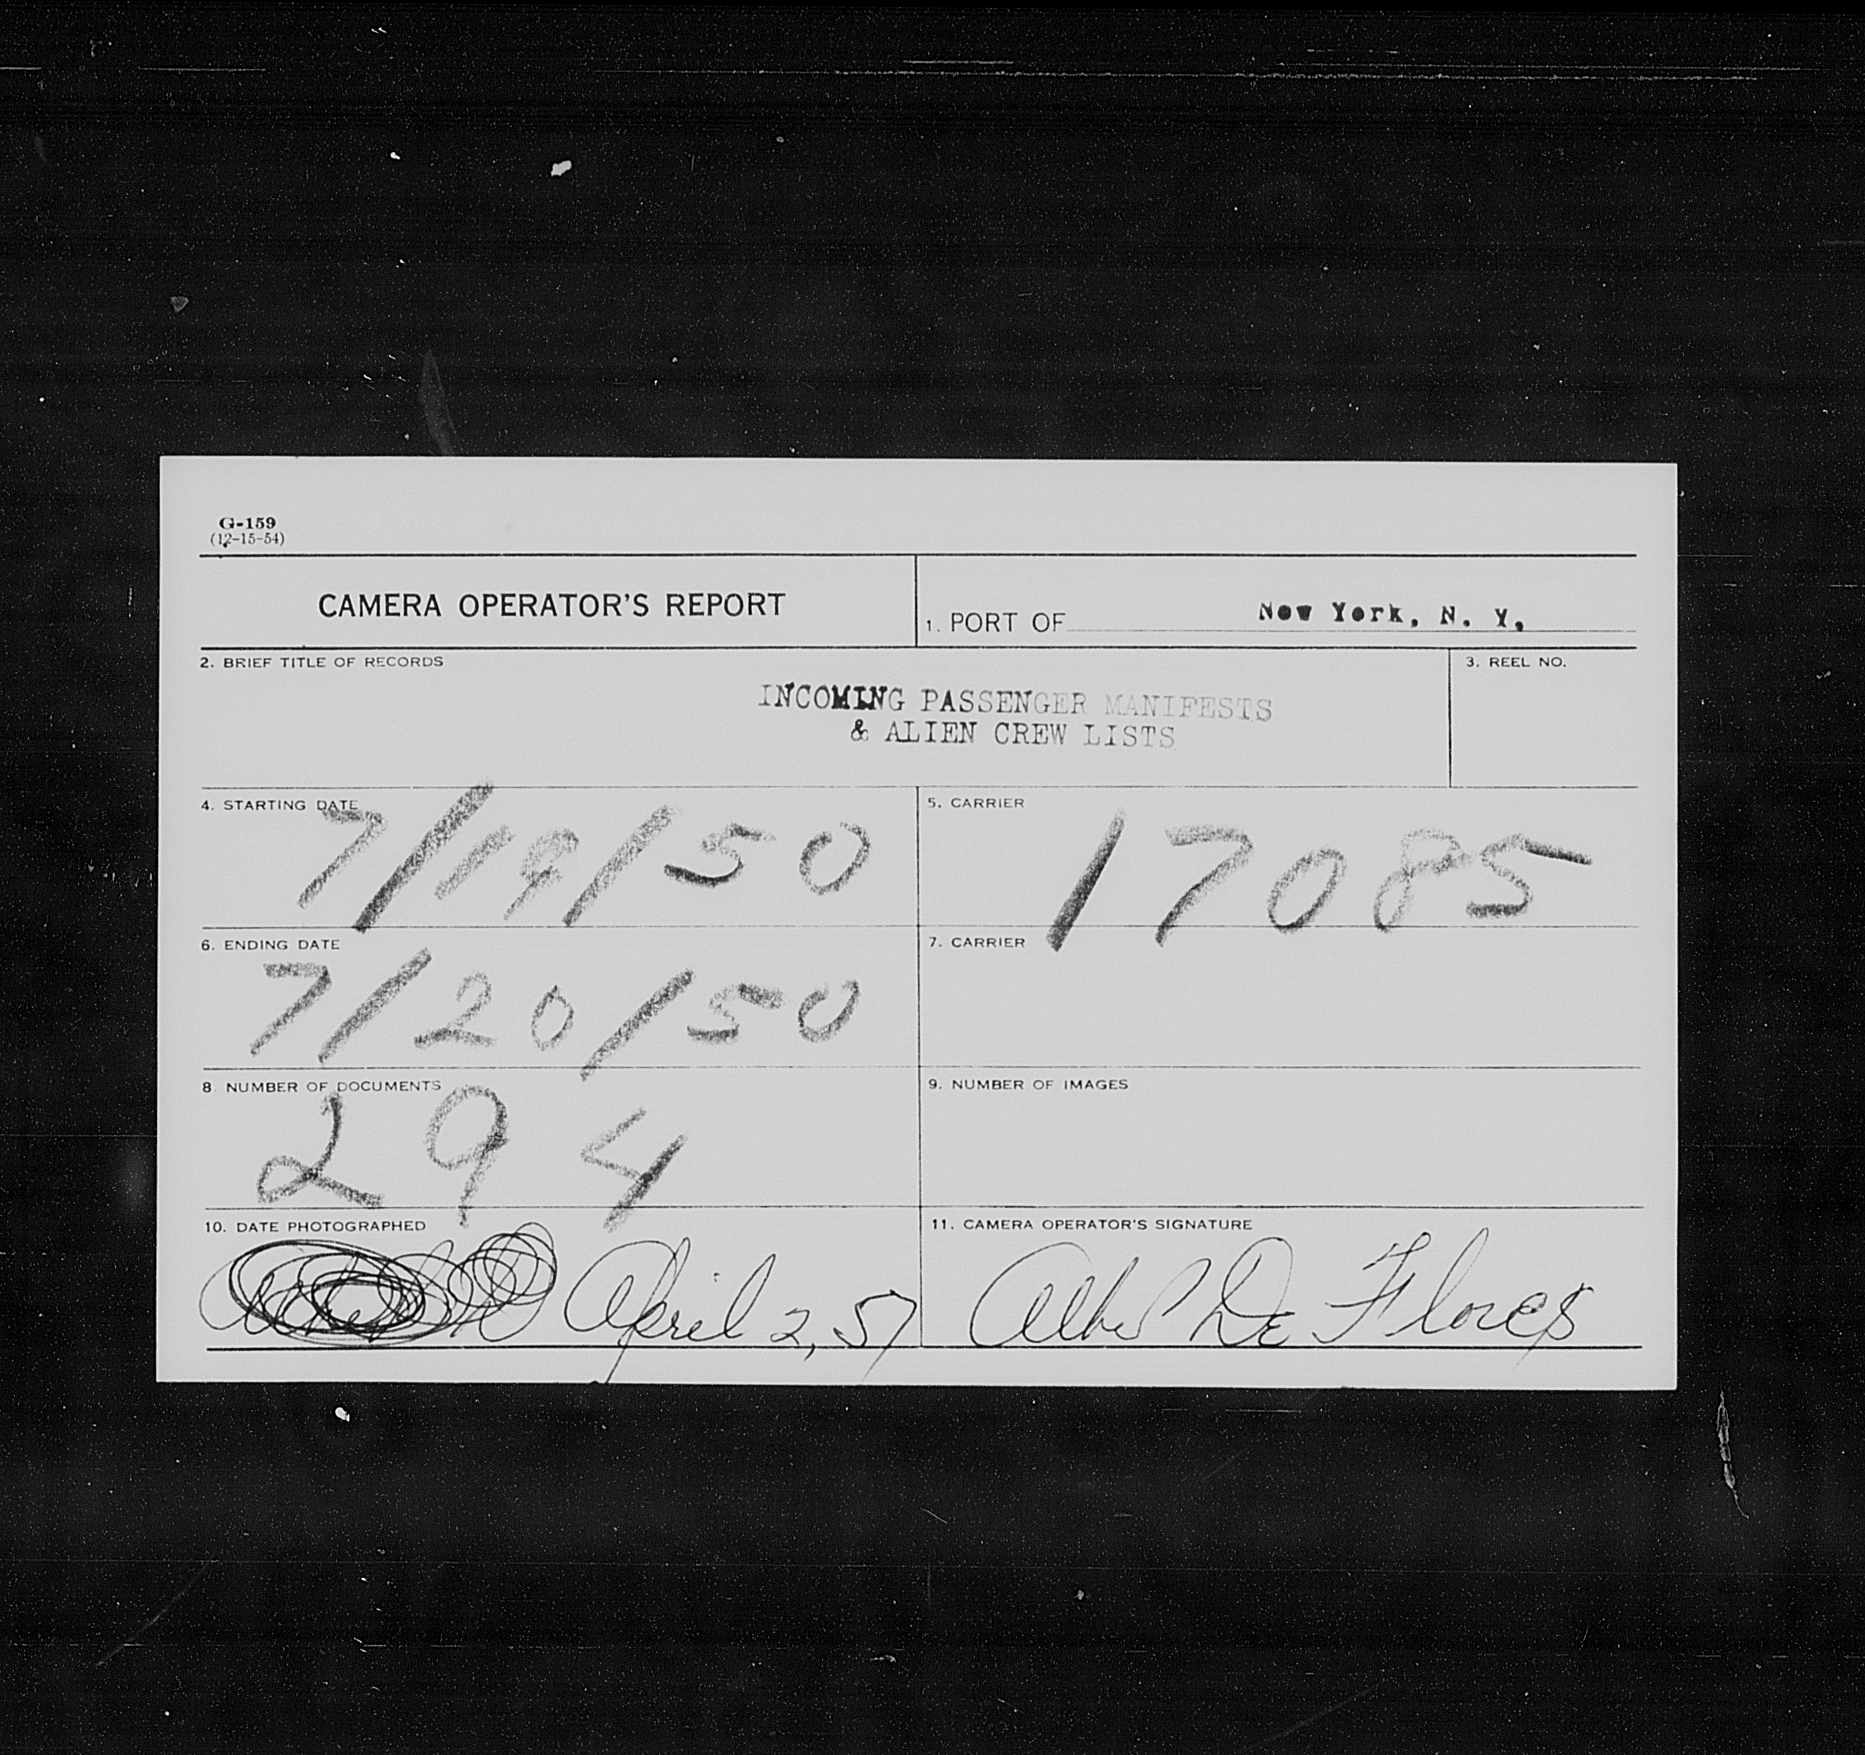 G-159
(12-15-54)
CAMERA OPERATOR'S REPORT
1. PORT OF New York, N. Y.
2. BRIEF TITLE OF RECORDS
3. REEL NO.
INCOMING PASSENGER MANIFESTS
& ALIEN CREW LISTS
4. STARTING DATE
7/19/50
5. CARRIER
17085
6. ENDING DATE
7/20/50
7. CARRIER
8 NUMBER OF DOCUMENTS
294
9. NUMBER OF IMAGES
10. DATE PHOTOGRAPHED
April 2, 57
11. CAMERA OPERATOR'S SIGNATURE
De Flores